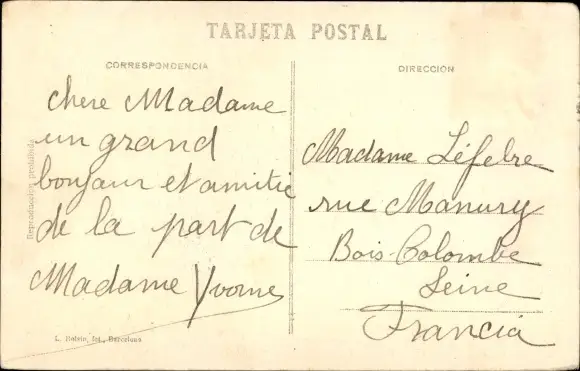 TARJETA POSTAL
CORRESPONDENCIA
DIRECCION
chere Madame
un grand
bonjour et amitie
de la part de
Madame Yvonne
Madame Léfebre
rue Manury
Bois-Colombe
Seine
Francia
Reproducción prohibida
L. Roisin, fot., Barcelona